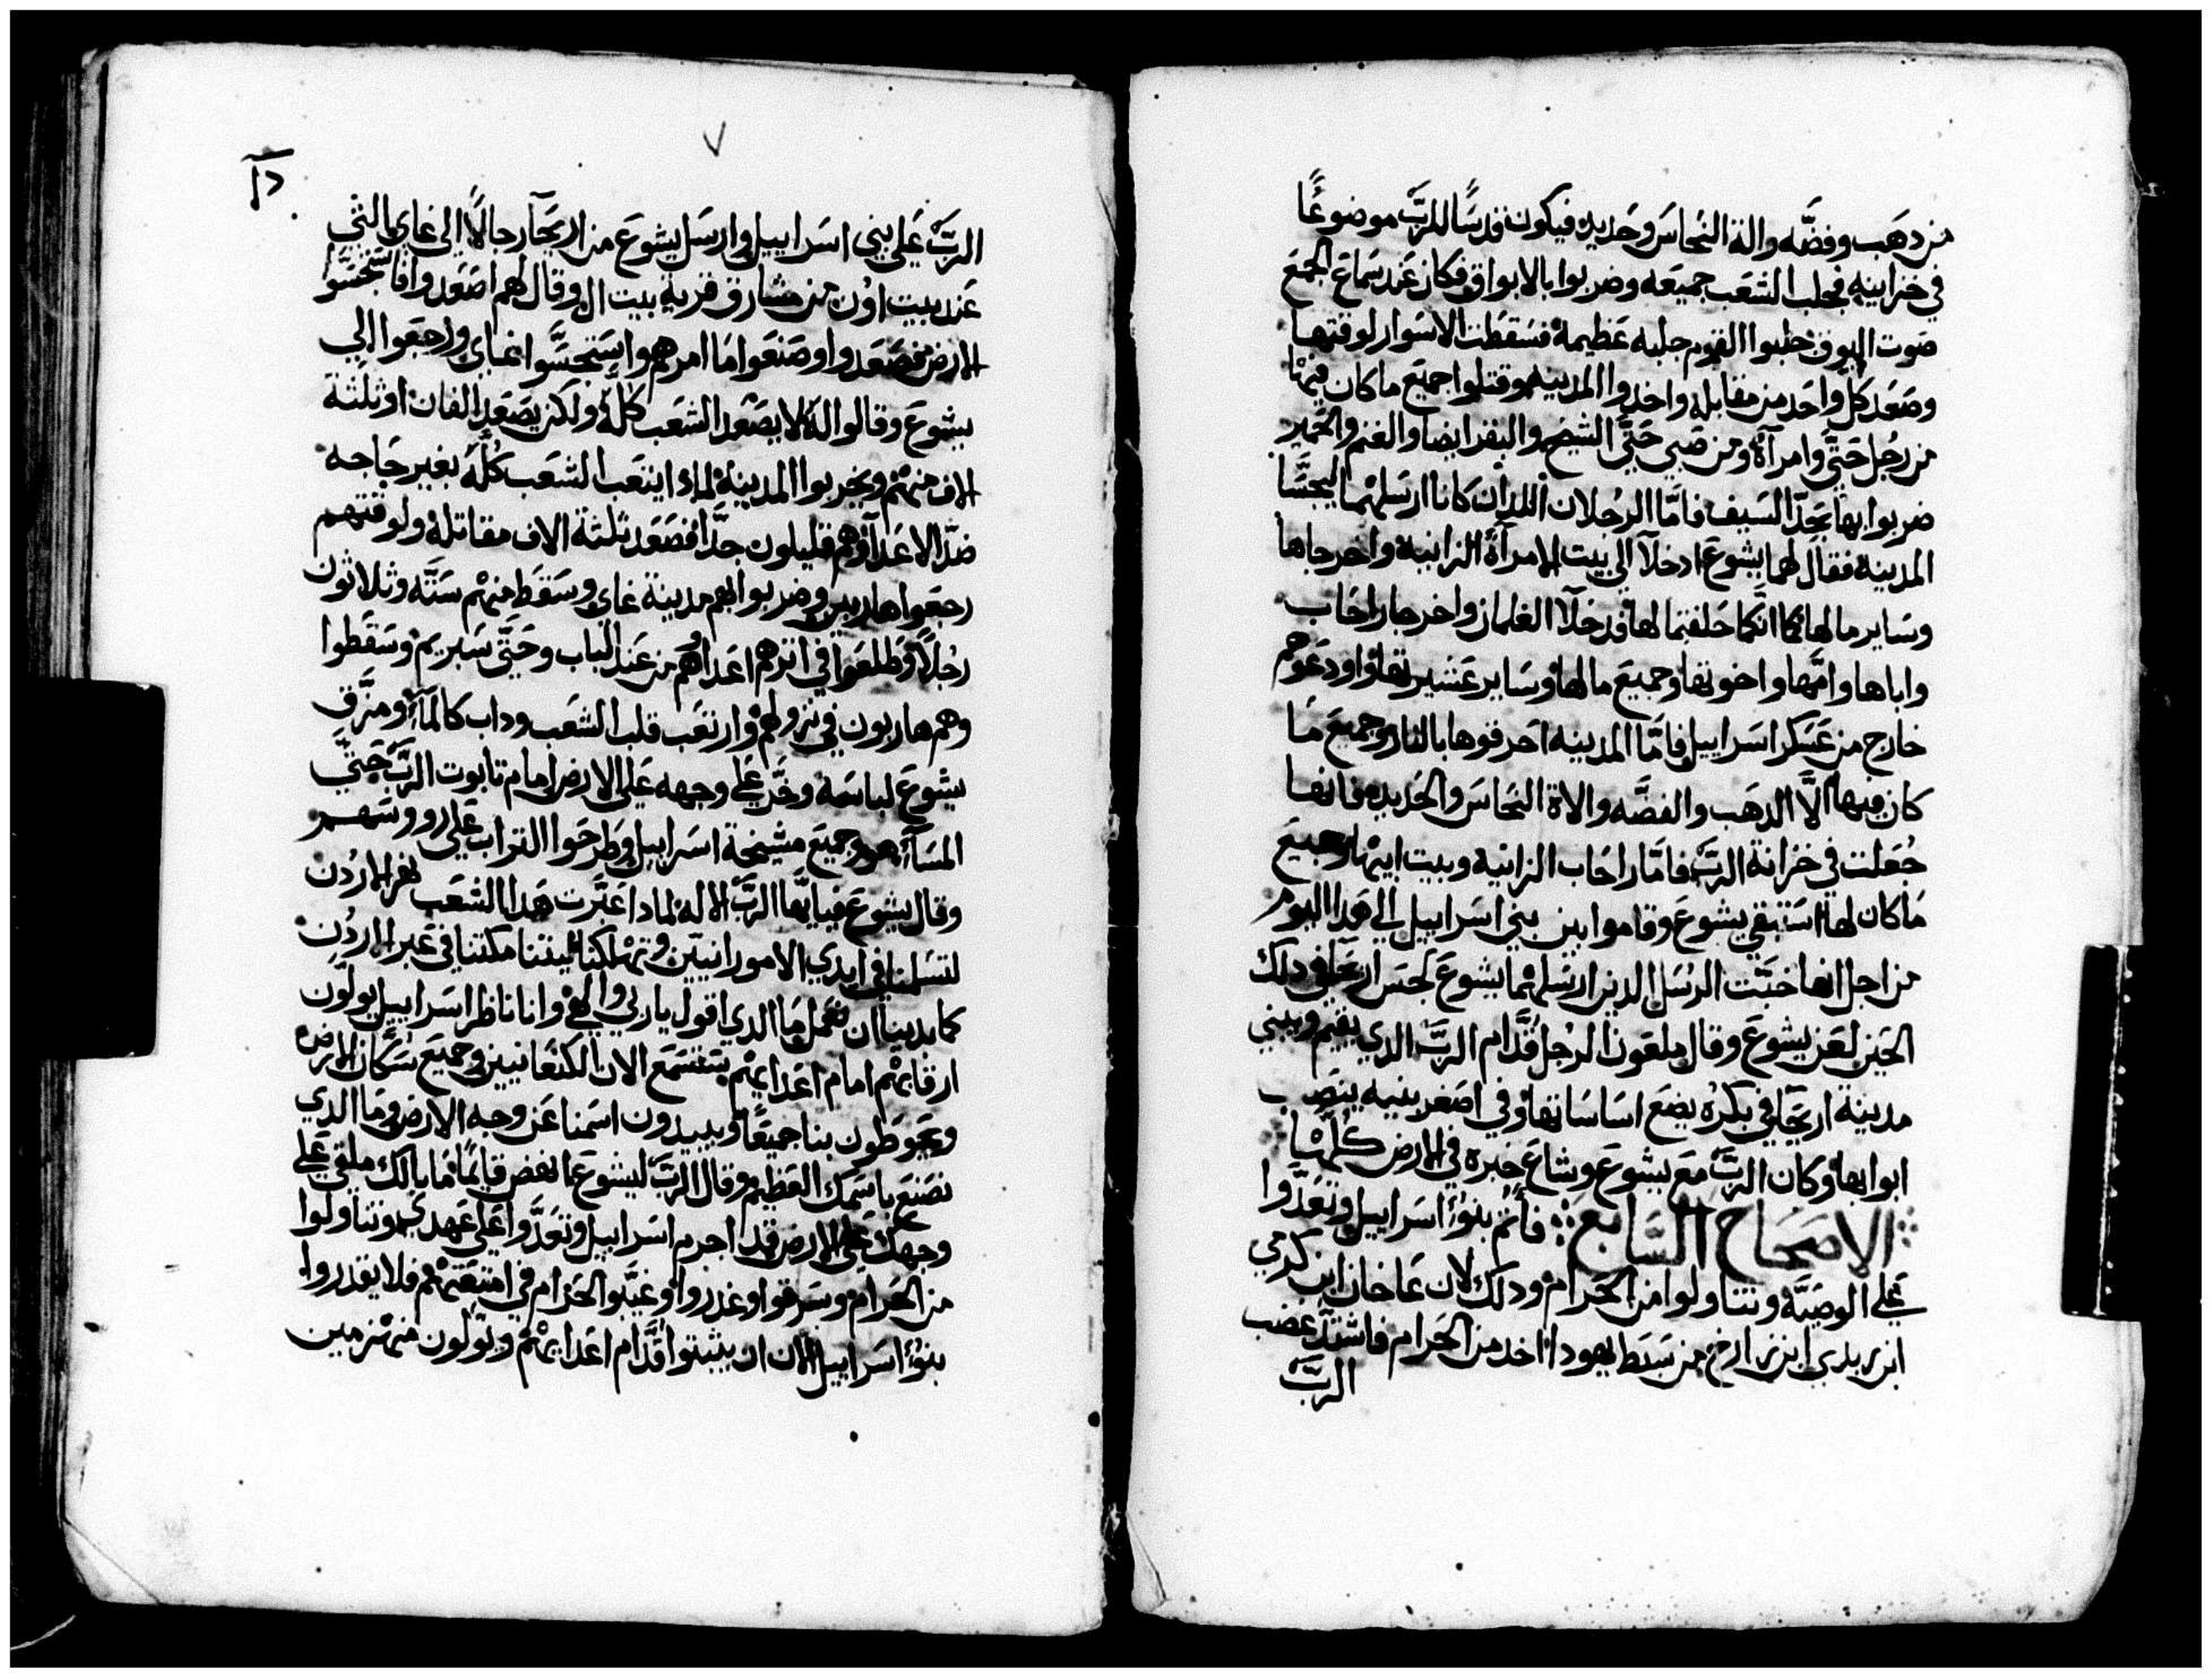 من دهب وفضّه والة النحاس وحديد فيكون قدسًا للربّ موضوعًا
في خزاينه فجلب الشعب جميعه وضربوا بالابواق فكان عند سماع الجمع
صوت البوق جلبوا القوم جلبه عظيمة فسقطت الاسوار لوقتها
وصعد كل واحد من مقابله واخدوا المدينه وقتلوا جميع ما كان فيها
من رجل حتّى وامرآة ومن صبي حتّي الشيخ والبقر ايضا والغنم والحمير
ضربوا بها بحدّ السيف فامّا الرجلان اللدان كانا ارسلهما ليجسّا
المدينه فقال لهما يشوع ادخلا الي بيت الامرآة الزانية واخرجاها
وساير مالها كما انّكما حلفتما لها فدخلا الغلمان واخرجا راحاب
واباها وامّها واخوتها وجميع مالها وساير عشيرتها واودعوهم
خارج من عسكر اسراييل فامّا المدينه احرقوها بالنار وجميع ما
كان فيها الّا الدهب والفضّه والاة النحاس والحديد فانها
جُعلت في خزانة الربّ فامّا راحاب الزانيه وبيت ابيها وجميع
ما كان لها استبقي يشوع وقاموا بين بني اسراييل الي هدا اليوم
من اجل انها خبّت الرسل الدين ارسلهما يشوع لجسّ اريحا في دلك
الحين لعن يشوع وقال ملعون الرجل قدّام الربّ الدي يقيم ويبني
مدينة اريحا في بكره يضع اساساتها وفي اصغر بنيه ينصب
ابوابها وكان الربّ مع يشوع وشاع خبره في الارض كلها
الاصحاح السابع فأثم بنوا اسراييل وتعدّوا
علي الوصيّة وتناولوا من الحرام ودلك لان عاخان ابن كرمي
ابن زبدي ابن زارخ من سبط يهودا اخد من الحرام فاشتدّ غضب
الربّ
٧
الربّ علي بني اسراييل وارسل يشوع من اريحآ رجالًا الي غاي التي
عند بيت اون من مشارق قرية بيت ال وقال لهم اصعدوا فاستجسّوا
الارض فصعدوا وصنعوا ما امرهم واستجسّوا غاي ورجعوا الي
يشوع وقالوا له لا يصعد الشعب كلّه ولكن يصعد الفان او ثلثة
الاف منهم ويخربوا المدينة لمادا يتعب الشعب كُلّه بغير حاجه
ضدّ الاعدآ وهم قليلون جدّا فصعد ثلثة الاف مقاتلة ولوقتهم
رجعوا هاربين وضربوا بهم مدينة غاي وسقط منهم ستّه وثلاثون
رجُلًا وطلعوا في اثرهم اعداهم من عند الباب وحتّى سبريم وسقطوا
وهم هاربون في نزولهم وارتعب قلب الشعب وداب كالمآء ومزّق
يشوع لباسه وخّر علي وجهه علي الارض امام تابوت الربّ حتّي
المسآء هو وجميع مشيخة اسراييل وطرحوا التراب علي رووسهم
وقال يشوع فيا ايّها الربّ الاله لمادا عبّرت هدا الشعب نهر الاردُن
لتسلمنا في ايدي الامورانيين وتهلكنا ليتنا مكثنا في عبر الاردُن
كما بدينا ان نعمل ما الدي اقول يا ربي والهي وانا ناظر اسراييل يولّون
ارقابهم امام اعدايهم يستسمع الان الكنعانيين وجميع سُكّان الارض
ويحوطون بنا جميعًا ويبيدون اسمنا عن وجه الارض وما الدي
تصنع باسمك العظيم وقال الربّ ليشوع انهض قايمًا ما بالك ملقي علي
وجهك علي الارض قد اجرم اسراييل وتعدّوا علي عهدي وتناولوا
من الحرام وسرقوا وغدروا وغيّبوا الحرام في امتعتهم فلا يقدروا
بنوا اسراييل الان ان يثبتوا قدّام اعدايهم ويولّون منهزمين